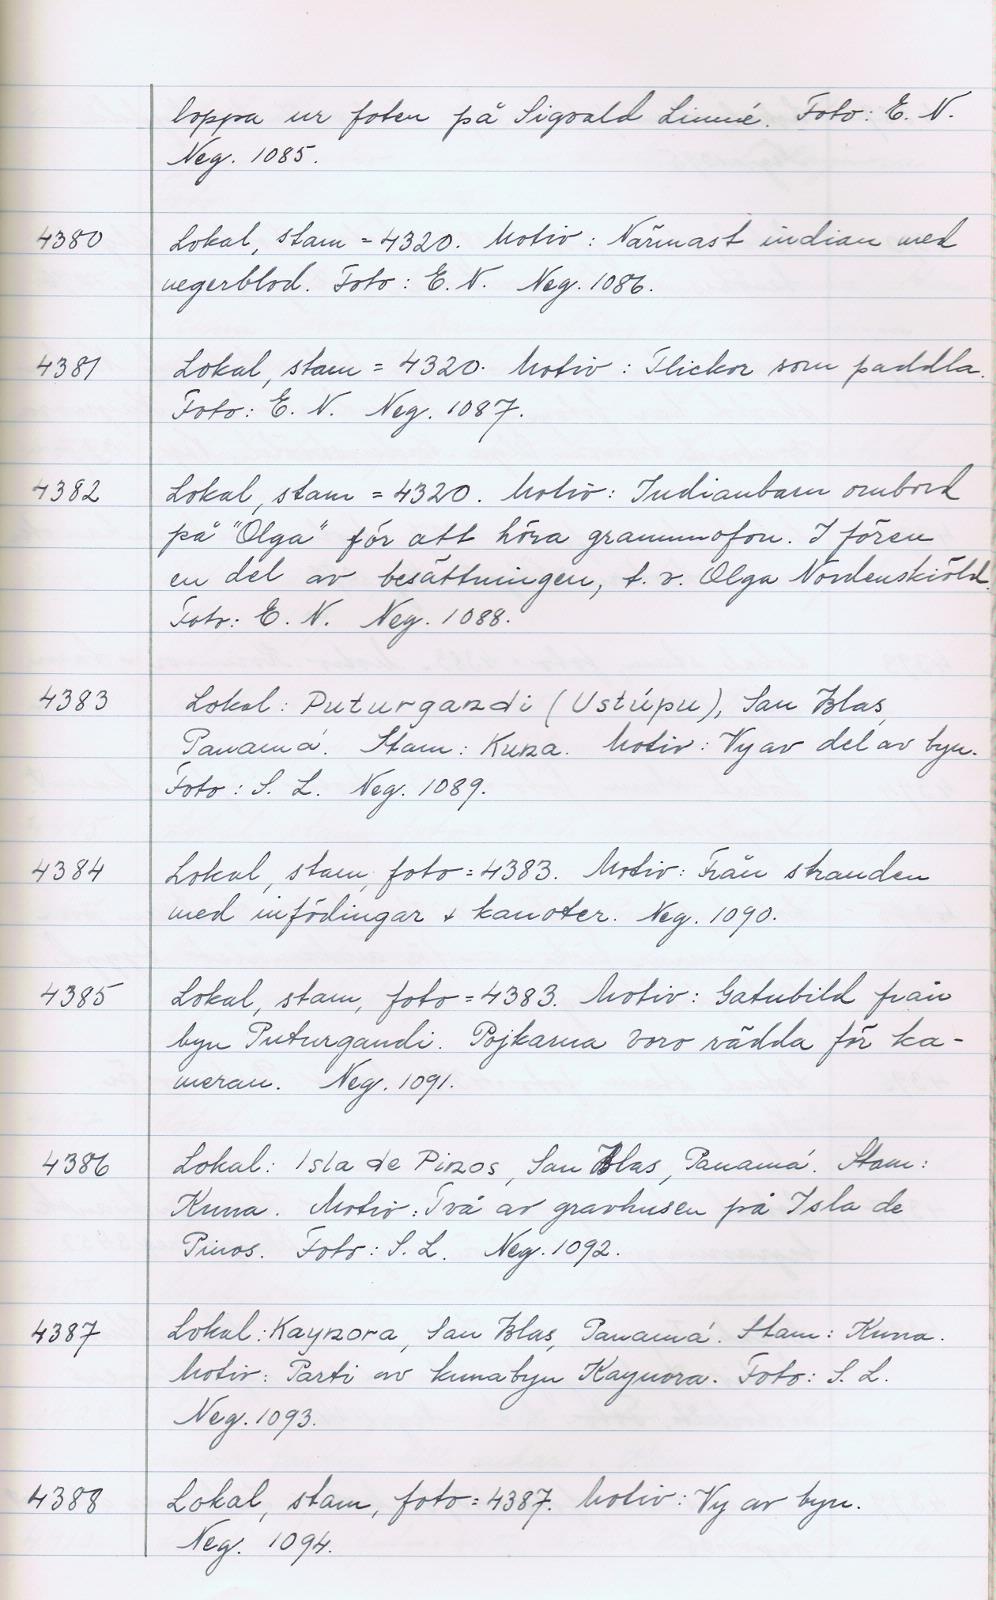 loppa ur foten på Sigvald Linné. Foto: E. N.
Neg. 1085.
4380 Lokal, stam = 4320. Motiv: Närmast indian med
negerblod. Foto: E. N. Neg. 1086.
4381 Lokal, stam = 4320. Motiv: Flickor som paddla.
Foto: E. N. Neg. 1087.
4382 Lokal, stam = 4320. Motiv: Indianbarn ombord
på "Olga" för att höra grammofon. I fören
en del av besättningen, t. v. Olga Nordenskiöld.
Foto: E. N. Neg. 1088.
4383 Lokal: Puturgandi (Ustúpu), San Blas,
Panamá. Stam: Kuna. Motiv: Vy av del av byn.
Foto: S. L. Neg. 1089.
4384 Lokal, stam, foto = 4383. Motiv: Från stranden
med infödingar & kanoter. Neg. 1090.
4385 Lokal, stam, foto = 4383. Motiv: Gatubild från
byn Puturgandi. Pojkarna voro rädda för ka-
meran. Neg. 1091.
4386 Lokal: Isla de Pinos, San Blas, Panamá. Stam:
Kuna. Motiv: Två av gravhusen på Isla de
Pinos. Foto: S. L. Neg. 1092.
4387 Lokal: Kaynora, San Blas, Panamá. Stam: Kuna.
Motiv: Parti av kunabyn Kaynora. Foto: S. L.
Neg. 1093.
4388 Lokal, stam, foto = 4387. Motiv: Vy av byn.
Neg. 1094.